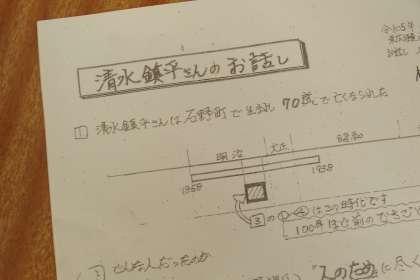 清水鎮平さんのお話し
令和5年
お話し
1 清水鎮平さんは石野町で生まれ 70歳で亡くなられた
明治 大正 昭和
1868 1938
3の①~④はこの時代です
100年ほど前のできごと
2 どんな人だったのか
"人のために尽